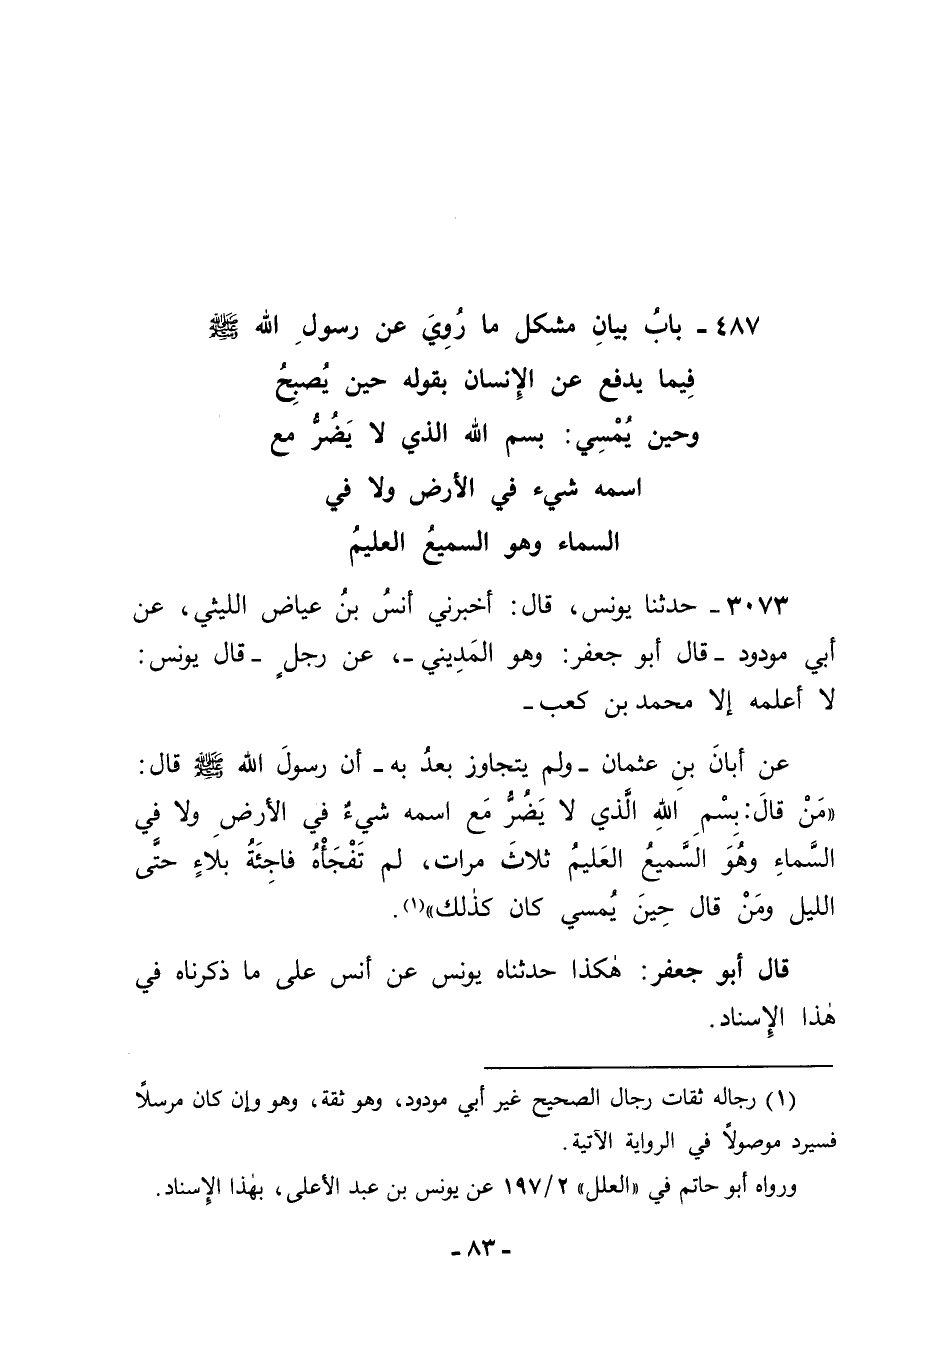 ٤٨٧ ـ بابُ بيانِ مشكل ما رُوِيَ عن رسولِ الله ﷺ
فِيما يدفع عن الإِنسان بقوله حين يُصبِحُ
وحين يُمْسِي: بسم الله الذي لا يَضُرُّ مع
اسمه شيء في الأرض ولا في
السماء وهو السميعُ العليمُ
٣٠٧٣ ـ حدثنا يونس، قال: أخبرني أنسُ بنُ عياض الليثي، عن
أبي مودود ـ قال أبو جعفر: وهو المَدِيني ـ، عن رجلٍ ـ قال يونس:
لا أعلمه إلا محمد بن كعب ـ
عن أبانَ بنِ عثمان ـ ولم يتجاوز بعدُ به ـ أن رسولَ الله ﷺ قال:
«مَنْ قالَ: بِسْمِ اللهِ الَّذي لا يَضُرُّ مَع اسمه شيءٌ في الأرضِ ولا في
السَّماءِ وهُوَ السَّميعُ العَليمُ ثلاثَ مرات، لم تَفْجَأْهُ فاجِئَةُ بلاءٍ حتَّى
الليل ومَنْ قال حِينَ يُمسي كان كذٰلك»(١).
قال أبو جعفر: هٰكذا حدثناه يونس عن أنس على ما ذكرناه في
هٰذا الإِسناد.
(١) رجاله ثقات رجال الصحيح غير أبي مودود، وهو ثقة، وهو وإن كان مرسلاً
فسيرد موصولاً في الرواية الآتية.
ورواه أبو حاتم في «العلل» ١٩٧/٢ عن يونس بن عبد الأعلى، بهٰذا الإِسناد.
ـ ٨٣ ـ